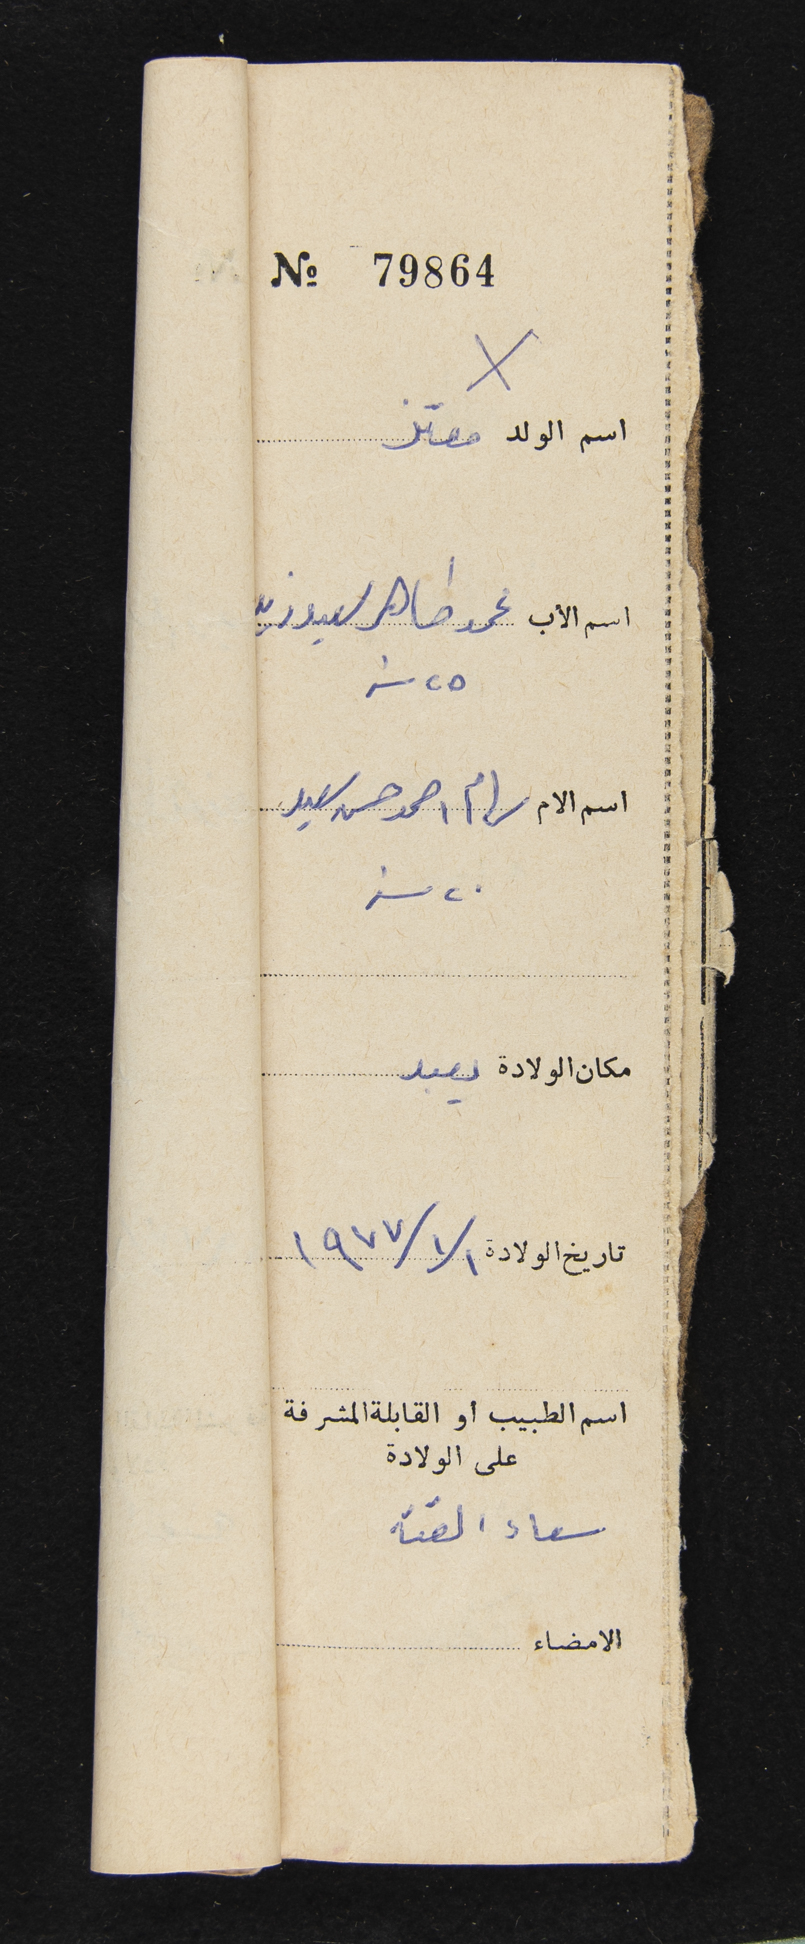 № 79864
اسم الولد معتز
اسم الأب محمد طاهر سعيد زيد
٢٥ سنة
اسم الام سهام احمد حسن سعيد
٢٠ سنة
مكان الولادة يعبد
تاريخ الولادة ١/١/١٩٧٧
اسم الطبيب او القابلة المشرفة
على الولادة
سعاد
الامضاء